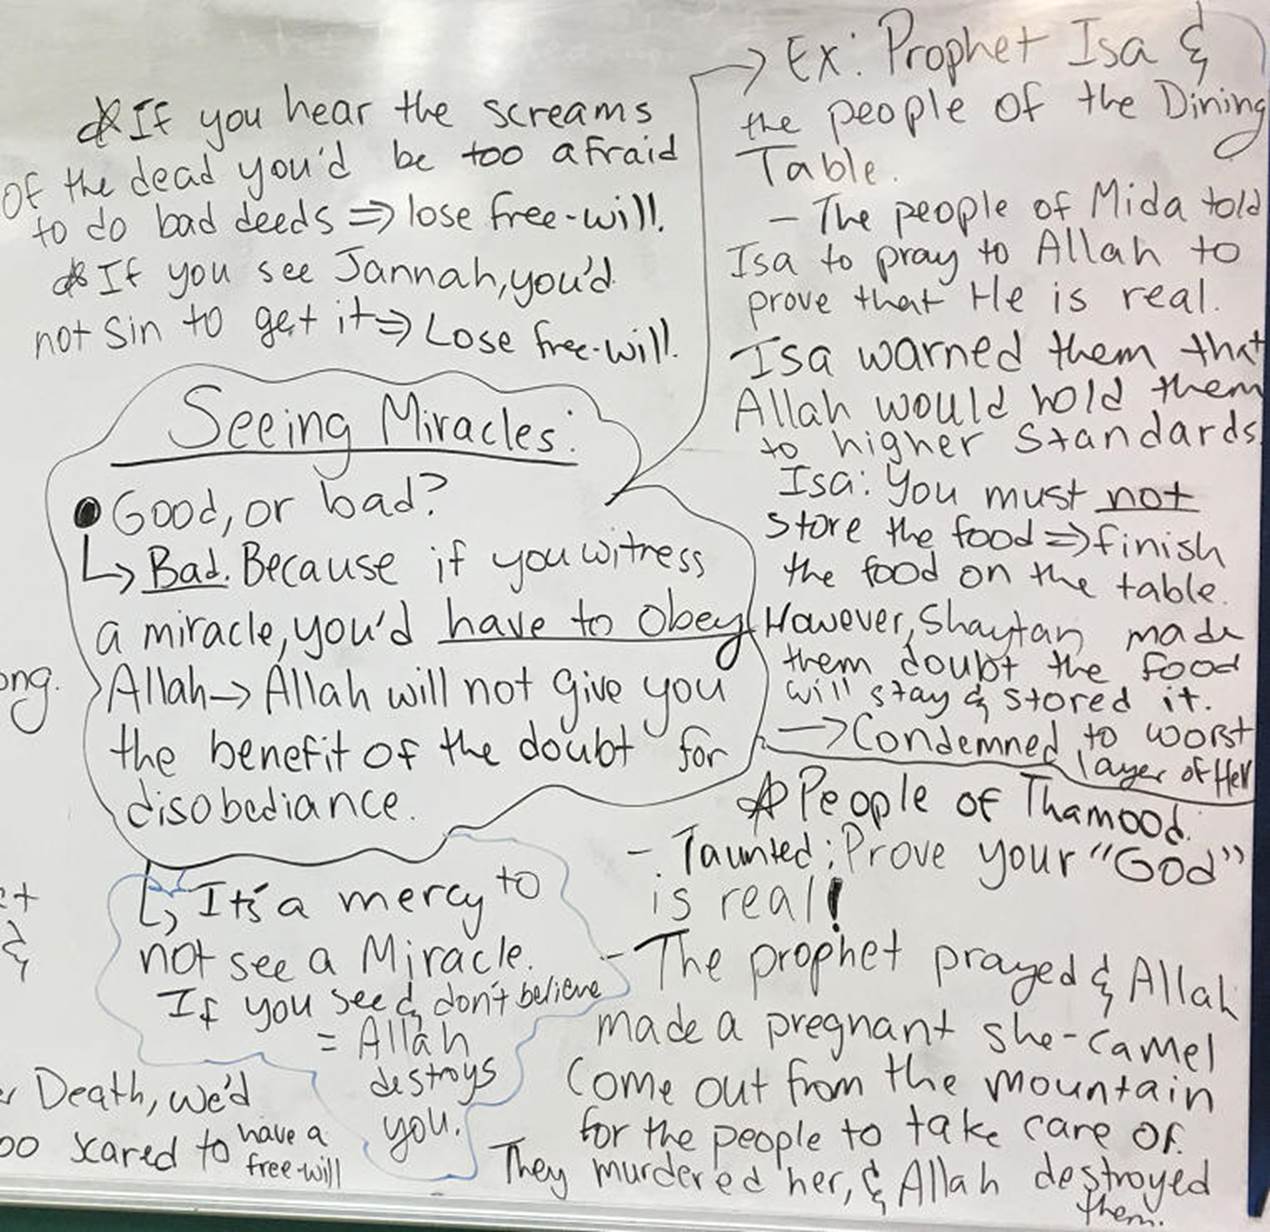 If you hear the screams
of the dead you'd be too afraid
to do bad deeds ⇒ lose free-will.
If you see Jannah, you'd
not sin to get it ⇒ Lose free-will.
Seeing Miracles:
• Good, or bad?
↳ Bad. Because if you witness
a miracle, you'd have to obey
Allah → Allah will not give you
the benefit of the doubt for
disobediance.
↳ It's a mercy to
not see a Miracle.
If you see & don't believe
= Allah
destroys
you.
ong.
&
Death, we'd
oo scared to have a
free-will
→ Ex: Prophet Isa &
the people of the Dining
Table.
- The people of Mida told
Isa to pray to Allah to
prove that He is real.
Isa warned them that
Allah would hold them
to higher standards.
Isa: You must not
store the food ⇒ finish
the food on the table.
However, Shaytan made
them doubt the food
will stay & stored it.
→ Condemned to worst
layer of Hell
People of Thamood.
- Taunted: Prove your "God"
is real!
- The prophet prayed & Allah
made a pregnant she-camel
come out from the mountain
for the people to take care of.
They murdered her, & Allah destroyed
them.